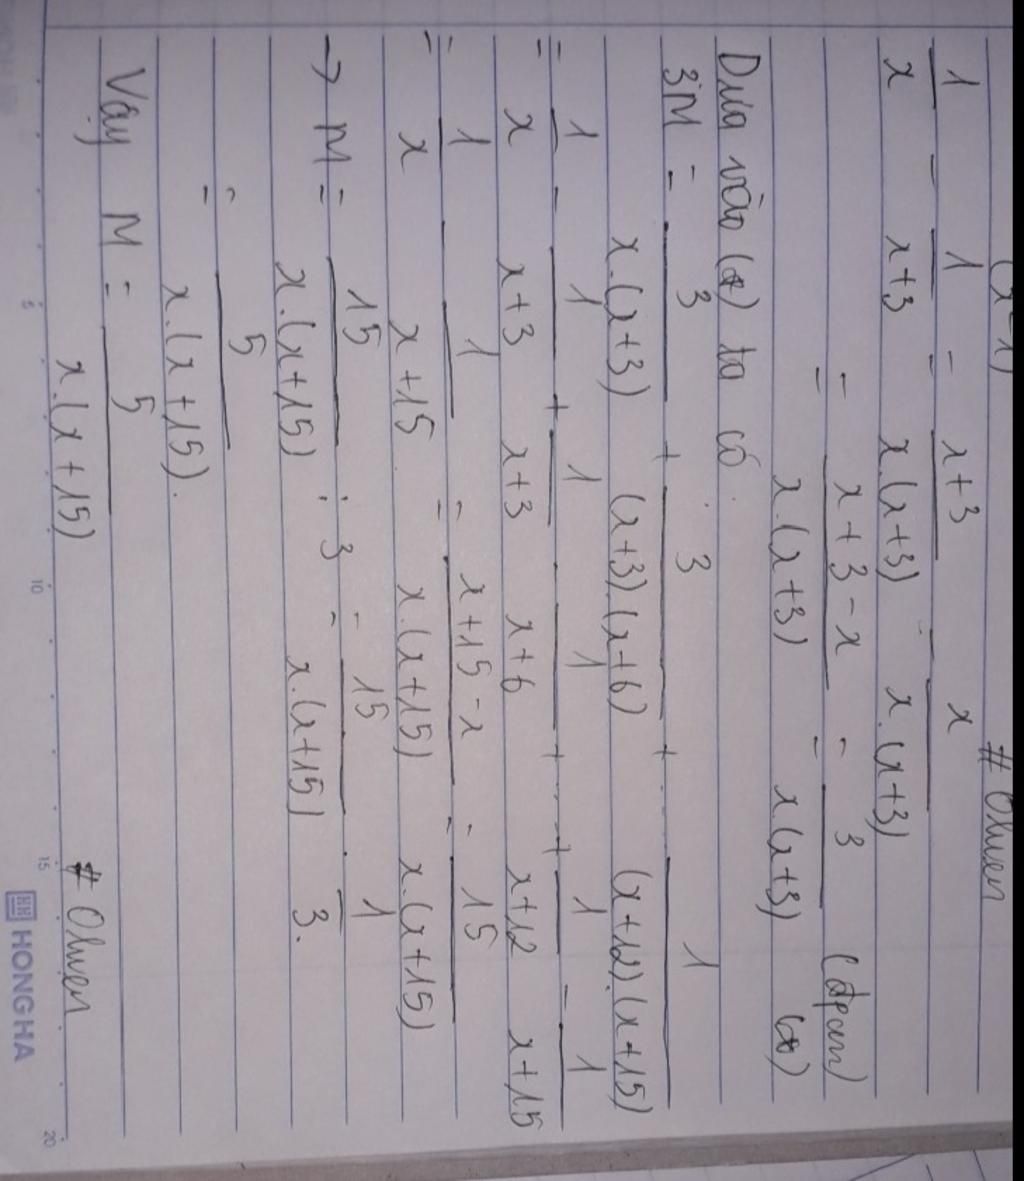 (x-1) # Olwen
1/x - 1/(x+3) = (x+3)/(x.(x+3)) - x/(x.(x+3))
= (x+3-x)/(x.(x+3)) = 3/(x.(x+3)) (đpcm) (*)
Dựa vào (*) ta có
3M = 3/(x.(x+3)) + 3/((x+3).(x+6)) + ... 1/((x+12).(x+15))
= 1/x - 1/(x+3) + 1/(x+3) - 1/(x+6) + ... + 1/(x+12) - 1/(x+15)
= 1/x - 1/(x+15) = (x+15-x)/(x.(x+15)) = 15/(x.(x+15))
→ M = 15/(x.(x+15)) : 3 = 15/(x.(x+15)) . 1/3.
= 5/(x.(x+15)).
Vậy M = 5/(x.(x+15))
# Olwen
5 10 15 20
HH HONG HA